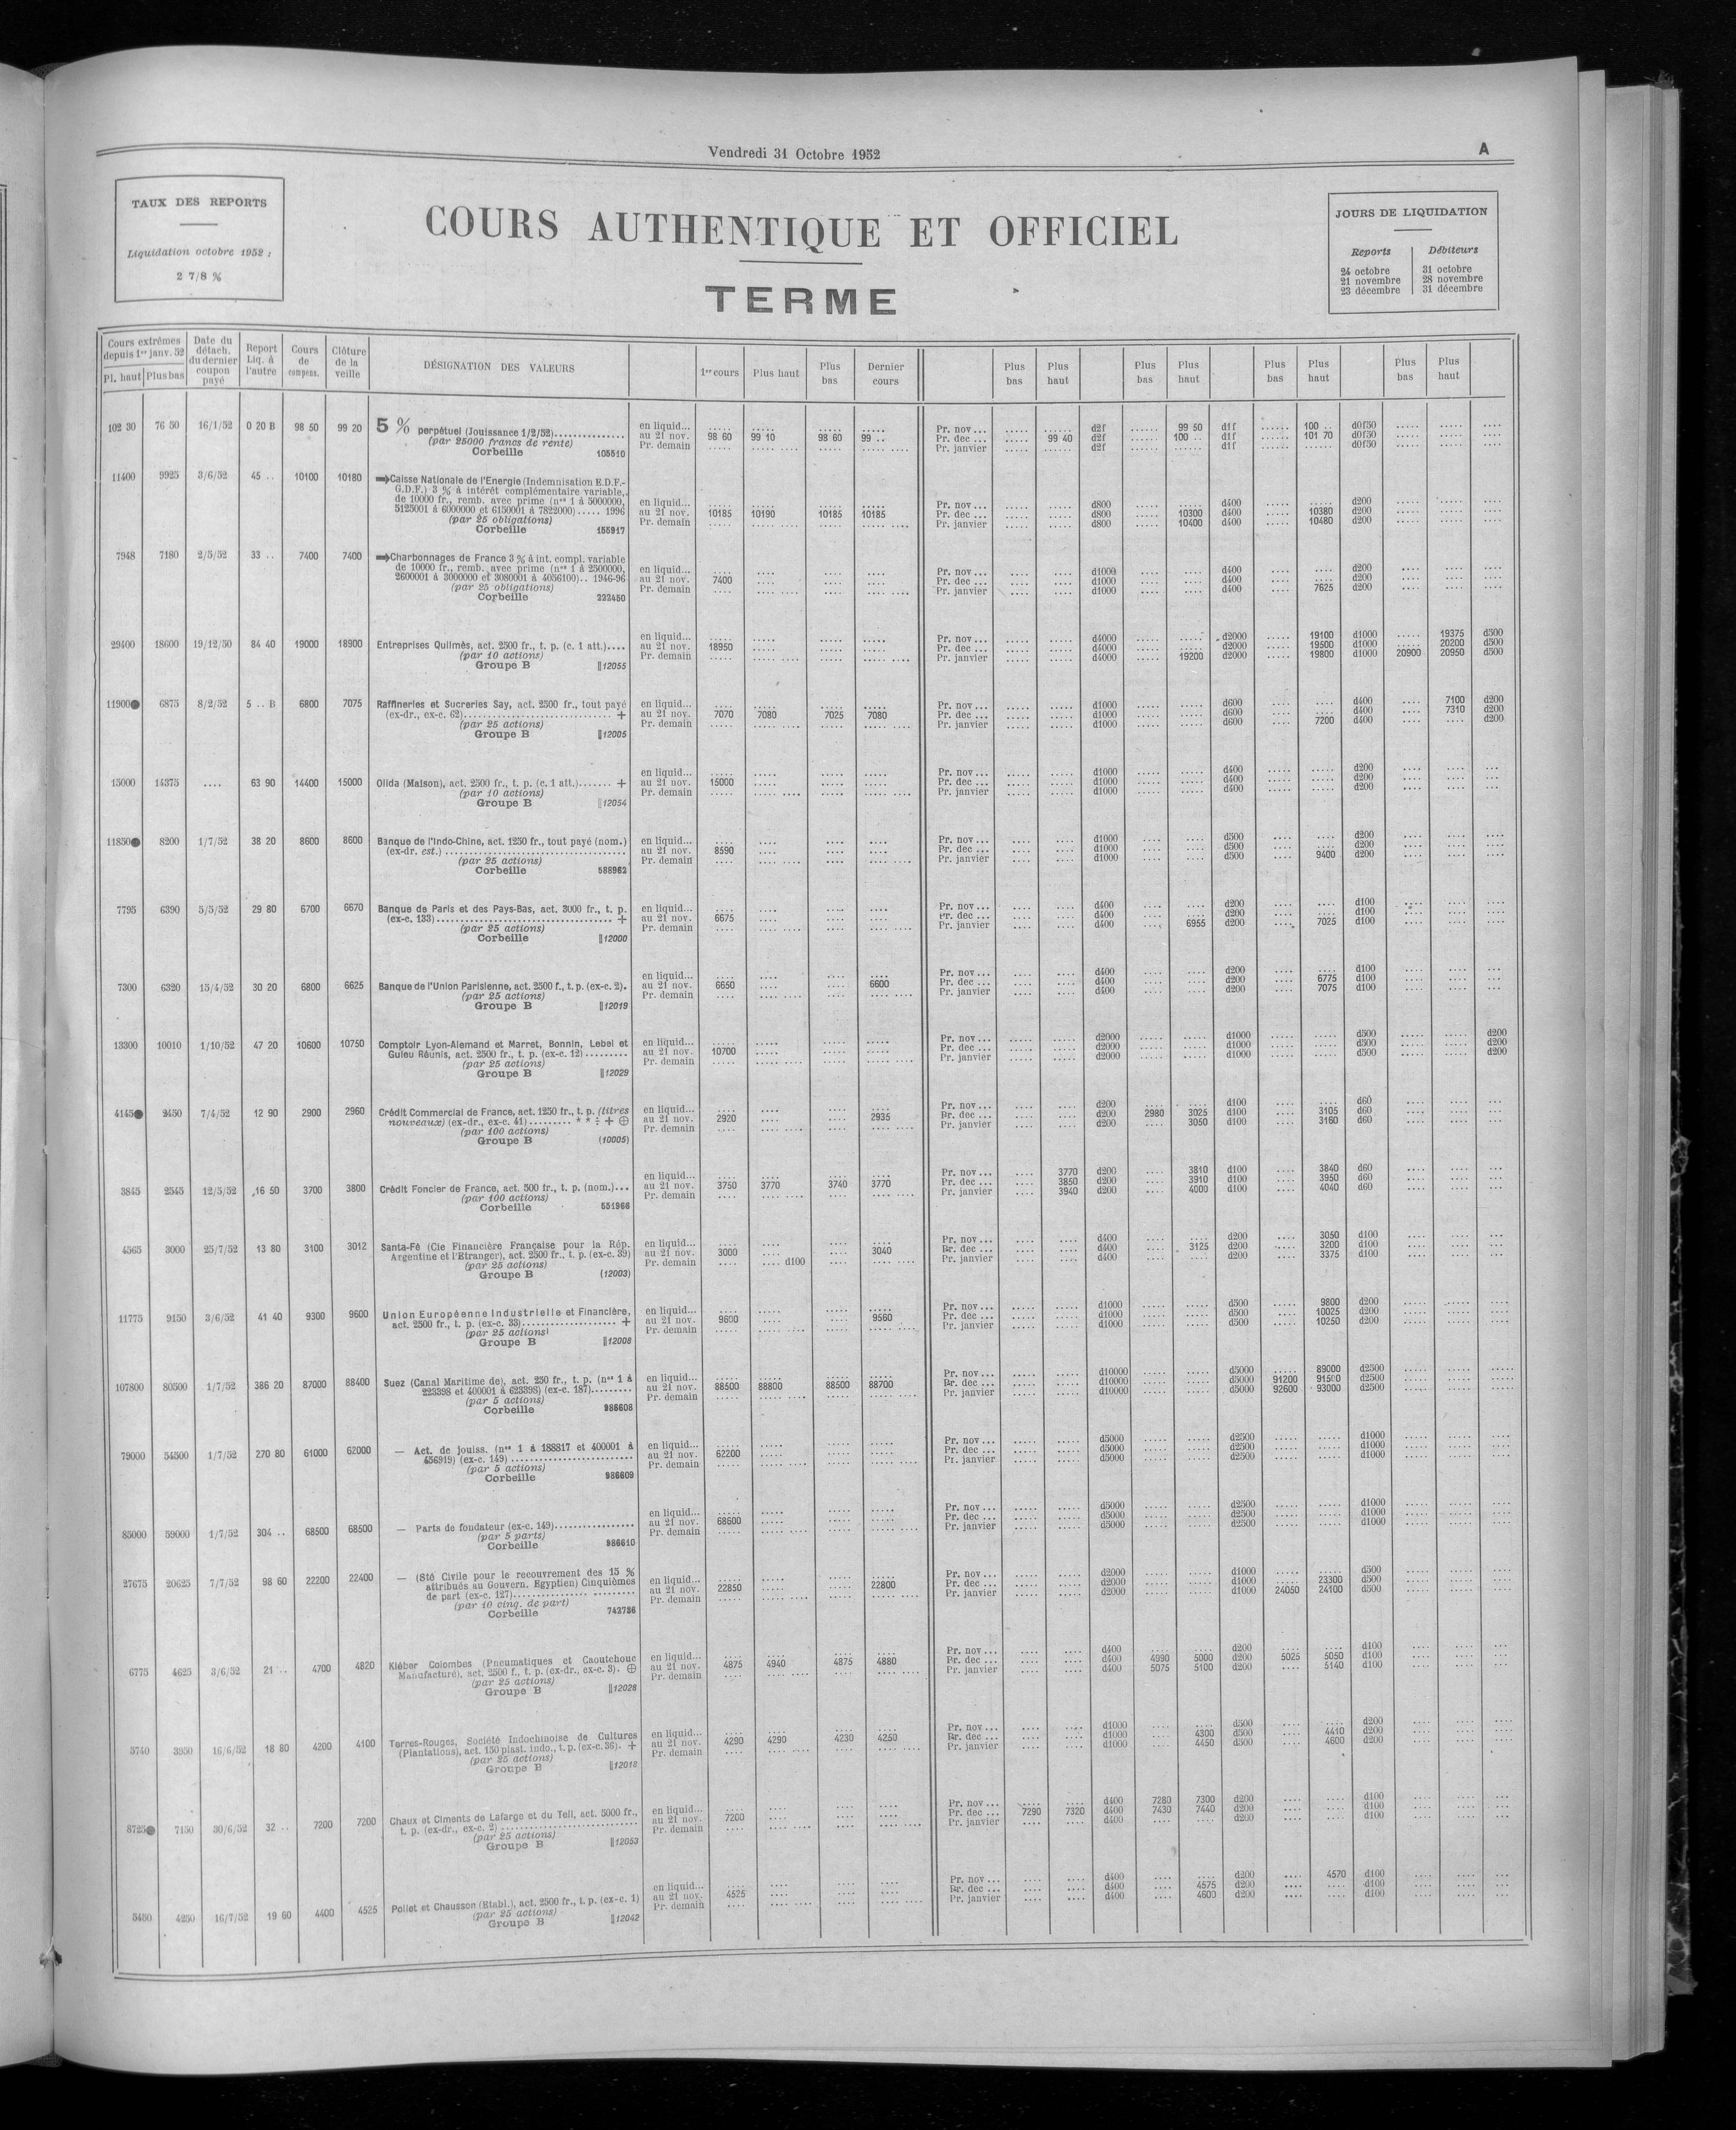 Vendredi 31 Octobre 1952 A
TAUX DES REPORTS
Liquidation octobre 1952 :
2 7/8 %
COURS AUTHENTIQUE ET OFFICIEL
TERME
JOURS DE LIQUIDATION
Reports Débiteurs
24 octobre 31 octobre
21 novembre 28 novembre
23 décembre 31 décembre
Cours extrêmes depuis 1er janv. 52 Pl. haut Plus bas
Date du détach. du dernier coupon payé
Report Liq. à l'autre
Cours de compens.
Clôture de la veille
DÉSIGNATION DES VALEURS
1er cours Plus haut Plus bas Dernier cours
Plus bas Plus haut Plus bas Plus haut Plus bas Plus haut Plus bas Plus haut
102 30 76 50 16/1/52 0 20 B 98 50 99 20 5 % perpétuel (Jouissance 1/2/52)
(par 25000 francs de rente)
Corbeille 105510
en liquid...
au 21 nov. 98 60 99 10 98 60 99 ..
Pr. demain
Pr. nov... d2f 99 50 d1f 100 .. d0f50
Pr. dec... 99 40 d2f 100 .. d1f 101 70 d0f50
Pr. janvier d2f d1f d0f50
11400 9925 3/6/52 45 .. 10100 10180 Caisse Nationale de l'Energie (Indemnisation E.D.F.-
G.D.F.) 3 % à intérêt complémentaire variable,
de 10000 fr., remb. avec prime (nos 1 à 5000000,
5125001 à 6000000 et 6150001 à 7822000)..... 1996
(par 25 obligations)
Corbeille 155917
en liquid...
au 21 nov. 10185 10190 10185 10185
Pr. demain
Pr. nov... d800 d400 d200
Pr. dec... d800 10300 d400 10380 d200
Pr. janvier d800 10400 d400 10480 d200
7948 7180 2/5/52 33 .. 7400 7400 Charbonnages de France 3 % à int. compl. variable
de 10000 fr., remb. avec prime (nos 1 à 2500000,
2600001 à 3000000 et 3080001 à 4056100).. 1946-96
(par 25 obligations)
Corbeille 222450
en liquid...
au 21 nov. 7400
Pr. demain
Pr. nov... d1000 d400 d200
Pr. dec... d1000 d400 d200
Pr. janvier d1000 d400 7625 d200
29400 18600 19/12/50 84 40 19000 18900 Entreprises Quilmès, act. 2500 fr., t. p. (c. 1 att.)....
(par 10 actions)
Groupe B 12055
en liquid...
au 21 nov. 18950
Pr. demain
Pr. nov... d4000 d2000 19100 d1000 19375 d500
Pr. dec... d4000 d2000 19500 d1000 20200 d500
Pr. janvier d4000 19200 d2000 19800 d1000 20900 20950 d500
11900● 6875 8/2/52 5 .. B 6800 7075 Raffineries et Sucreries Say, act. 2500 fr., tout payé
(ex-dr., ex-c. 62) +
(par 25 actions)
Groupe B 12005
en liquid...
au 21 nov. 7070 7080 7025 7080
Pr. demain
Pr. nov... d1000 d600 d400 7100 d200
Pr. dec... d1000 d600 d400 7310 d200
Pr. janvier d1000 d600 7200 d400 d200
15000 14375 .... 63 90 14400 15000 Olida (Maison), act. 2500 fr., t. p. (c. 1 att.)....... +
(par 10 actions)
Groupe B 12054
en liquid...
au 21 nov. 15000
Pr. demain
Pr. nov... d1000 d400 d200
Pr. dec... d1000 d400 d200
Pr. janvier d1000 d400 d200
11850● 8200 1/7/52 38 20 8600 8600 Banque de l'Indo-Chine, act. 1250 fr., tout payé (nom.)
(ex-dr. est.)
(par 25 actions)
Corbeille 588962
en liquid...
au 21 nov. 8590
Pr. demain
Pr. nov... d1000 d500 d200
Pr. dec... d1000 d500 d200
Pr. janvier d1000 d500 9400 d200
7795 6390 5/5/52 29 80 6700 6670 Banque de Paris et des Pays-Bas, act. 3000 fr., t. p.
(ex-c. 133) +
(par 25 actions)
Corbeille 12000
en liquid...
au 21 nov. 6675
Pr. demain
Pr. nov... d400 d200 d100
Pr. dec... d400 d200 d100
Pr. janvier d400 6955 d200 7025 d100
7300 6320 15/4/52 30 20 6800 6625 Banque de l'Union Parisienne, act. 2500 f., t. p. (ex-c. 2).
(par 25 actions)
Groupe B 12019
en liquid...
au 21 nov. 6650 6600
Pr. demain
Pr. nov... d400 d200 d100
Pr. dec... d400 d200 6775 d100
Pr. janvier d400 d200 7075 d100
13300 10010 1/10/52 47 20 10600 10750 Comptoir Lyon-Alemand et Marret, Bonnin, Lebel et
Guieu Réunis, act. 2500 fr., t. p. (ex-c. 12)
(par 25 actions)
Groupe B 12029
en liquid...
au 21 nov. 10700
Pr. demain
Pr. nov... d2000 d1000 d500 d200
Pr. dec... d2000 d1000 d500 d200
Pr. janvier d2000 d1000 d500 d200
4145● 2450 7/4/52 12 90 2900 2960 Crédit Commercial de France, act. 1250 fr., t. p. (titres
nouveaux) (ex-dr., ex-c. 41)......... * * ÷ + ⊕
(par 100 actions)
Groupe B (10005)
en liquid...
au 21 nov. 2920 2935
Pr. demain
Pr. nov... d200 d100 d60
Pr. dec... d200 2980 3025 d100 3105 d60
Pr. janvier d200 3050 d100 3160 d60
3845 2545 12/5/52 16 50 3700 3800 Crédit Foncier de France, act. 500 fr., t. p. (nom.)...
(par 100 actions)
Corbeille 551966
en liquid...
au 21 nov. 3750 3770 3740 3770
Pr. demain
Pr. nov... 3770 d200 3810 d100 3840 d60
Pr. dec... 3850 d200 3910 d100 3950 d60
Pr. janvier 3940 d200 4000 d100 4040 d60
4565 3000 25/7/52 13 80 3100 3012 Santa-Fé (Cie Financière Française pour la Rép.
Argentine et l'Etranger), act. 2500 fr., t. p. (ex-c. 39)
(par 25 actions)
Groupe B (12003)
en liquid...
au 21 nov. 3000 3040
Pr. demain .... .... d100
Pr. nov... d400 d200 3050 d100
Pr. dec... d400 3125 d200 3200 d100
Pr. janvier d400 d200 3375 d100
11775 9150 3/6/52 41 40 9300 9600 Union Européenne Industrielle et Financière,
act. 2500 fr., t. p. (ex-c. 33) +
(par 25 actions)
Groupe B 12008
en liquid...
au 21 nov. 9600 9560
Pr. demain
Pr. nov... d1000 d500 9800 d200
Pr. dec... d1000 d500 10025 d200
Pr. janvier d1000 d500 10250 d200
107800 80500 1/7/52 386 20 87000 88400 Suez (Canal Maritime de), act. 250 fr., t. p. (nos 1 à
223398 et 400001 à 623398) (ex-c. 187)
(par 5 actions)
Corbeille 986608
en liquid...
au 21 nov. 88500 88800 88500 88700
Pr. demain
Pr. nov... d10000 d5000 89000 d2500
Pr. dec... d10000 d5000 91200 91500 d2500
Pr. janvier d10000 d5000 92600 93000 d2500
79000 54500 1/7/52 270 80 61000 62000 — Act. de jouiss. (nos 1 à 188817 et 400001 à
456919) (ex-c. 149)
(par 5 actions)
Corbeille 986609
en liquid...
au 21 nov. 62200
Pr. demain
Pr. nov... d5000 d2500 d1000
Pr. dec... d5000 d2500 d1000
Pr. janvier d5000 d2500 d1000
85000 59000 1/7/52 304 .. 68500 68500 — Parts de fondateur (ex-c. 149)
(par 5 parts)
Corbeille 986610
en liquid...
au 21 nov. 68600
Pr. demain
Pr. nov... d5000 d2500 d1000
Pr. dec... d5000 d2500 d1000
Pr. janvier d5000 d2500 d1000
27675 20625 7/7/52 98 60 22200 22400 — (Sté Civile pour le recouvrement des 15 %
attribués au Gouvern. Egyptien) Cinquièmes
de part (ex-c. 127)
(par 10 cinq. de part)
Corbeille 743786
en liquid...
au 21 nov. 22850 22800
Pr. demain
Pr. nov... d2000 d1000 d500
Pr. dec... d2000 d1000 23300 d500
Pr. janvier d2000 d1000 24050 24100 d500
6775 4625 3/6/52 21 .. 4700 4820 Kléber Colombes (Pneumatiques et Caoutchouc
Manufacturé), act. 2500 f., t. p. (ex-dr., ex-c. 3). ⊕
(par 25 actions)
Groupe B 12028
en liquid...
au 21 nov. 4875 4940 4875 4880
Pr. demain
Pr. nov... d400 d200 d100
Pr. dec... d400 4990 5000 d200 5025 5050 d100
Pr. janvier d400 5075 5100 d200 5140 d100
5740 3950 16/6/52 18 80 4200 4100 Terres-Rouges, Société Indochinoise de Cultures
(Plantations), act. 150 piast. indo., t. p. (ex-c. 36). +
(par 25 actions)
Groupe B 12018
en liquid...
au 21 nov. 4290 4290 4230 4250
Pr. demain
Pr. nov... d1000 d500 d200
Pr. dec... d1000 4300 d500 4410 d200
Pr. janvier d1000 4450 d500 4600 d200
8725● 7150 30/6/52 32 .. 7200 7200 Chaux et Ciments de Lafarge et du Teil, act. 5000 fr.,
t. p. (ex-dr., ex-c. 2)
(par 25 actions)
Groupe B 12053
en liquid...
au 21 nov. 7200
Pr. demain
Pr. nov... d400 7280 7300 d200 d100
Pr. dec... 7290 7320 d400 7430 7440 d200 d100
Pr. janvier d400 d200 d100
5450 4250 16/7/52 19 60 4400 4525 Poliet et Chausson (Etabl.), act. 2500 fr., t. p. (ex-c. 1)
(par 25 actions)
Groupe B 12042
en liquid...
au 21 nov. 4525
Pr. demain
Pr. nov... d400 d200 4570 d100
Pr. dec... d400 4575 d200 d100
Pr. janvier d400 4600 d200 d100